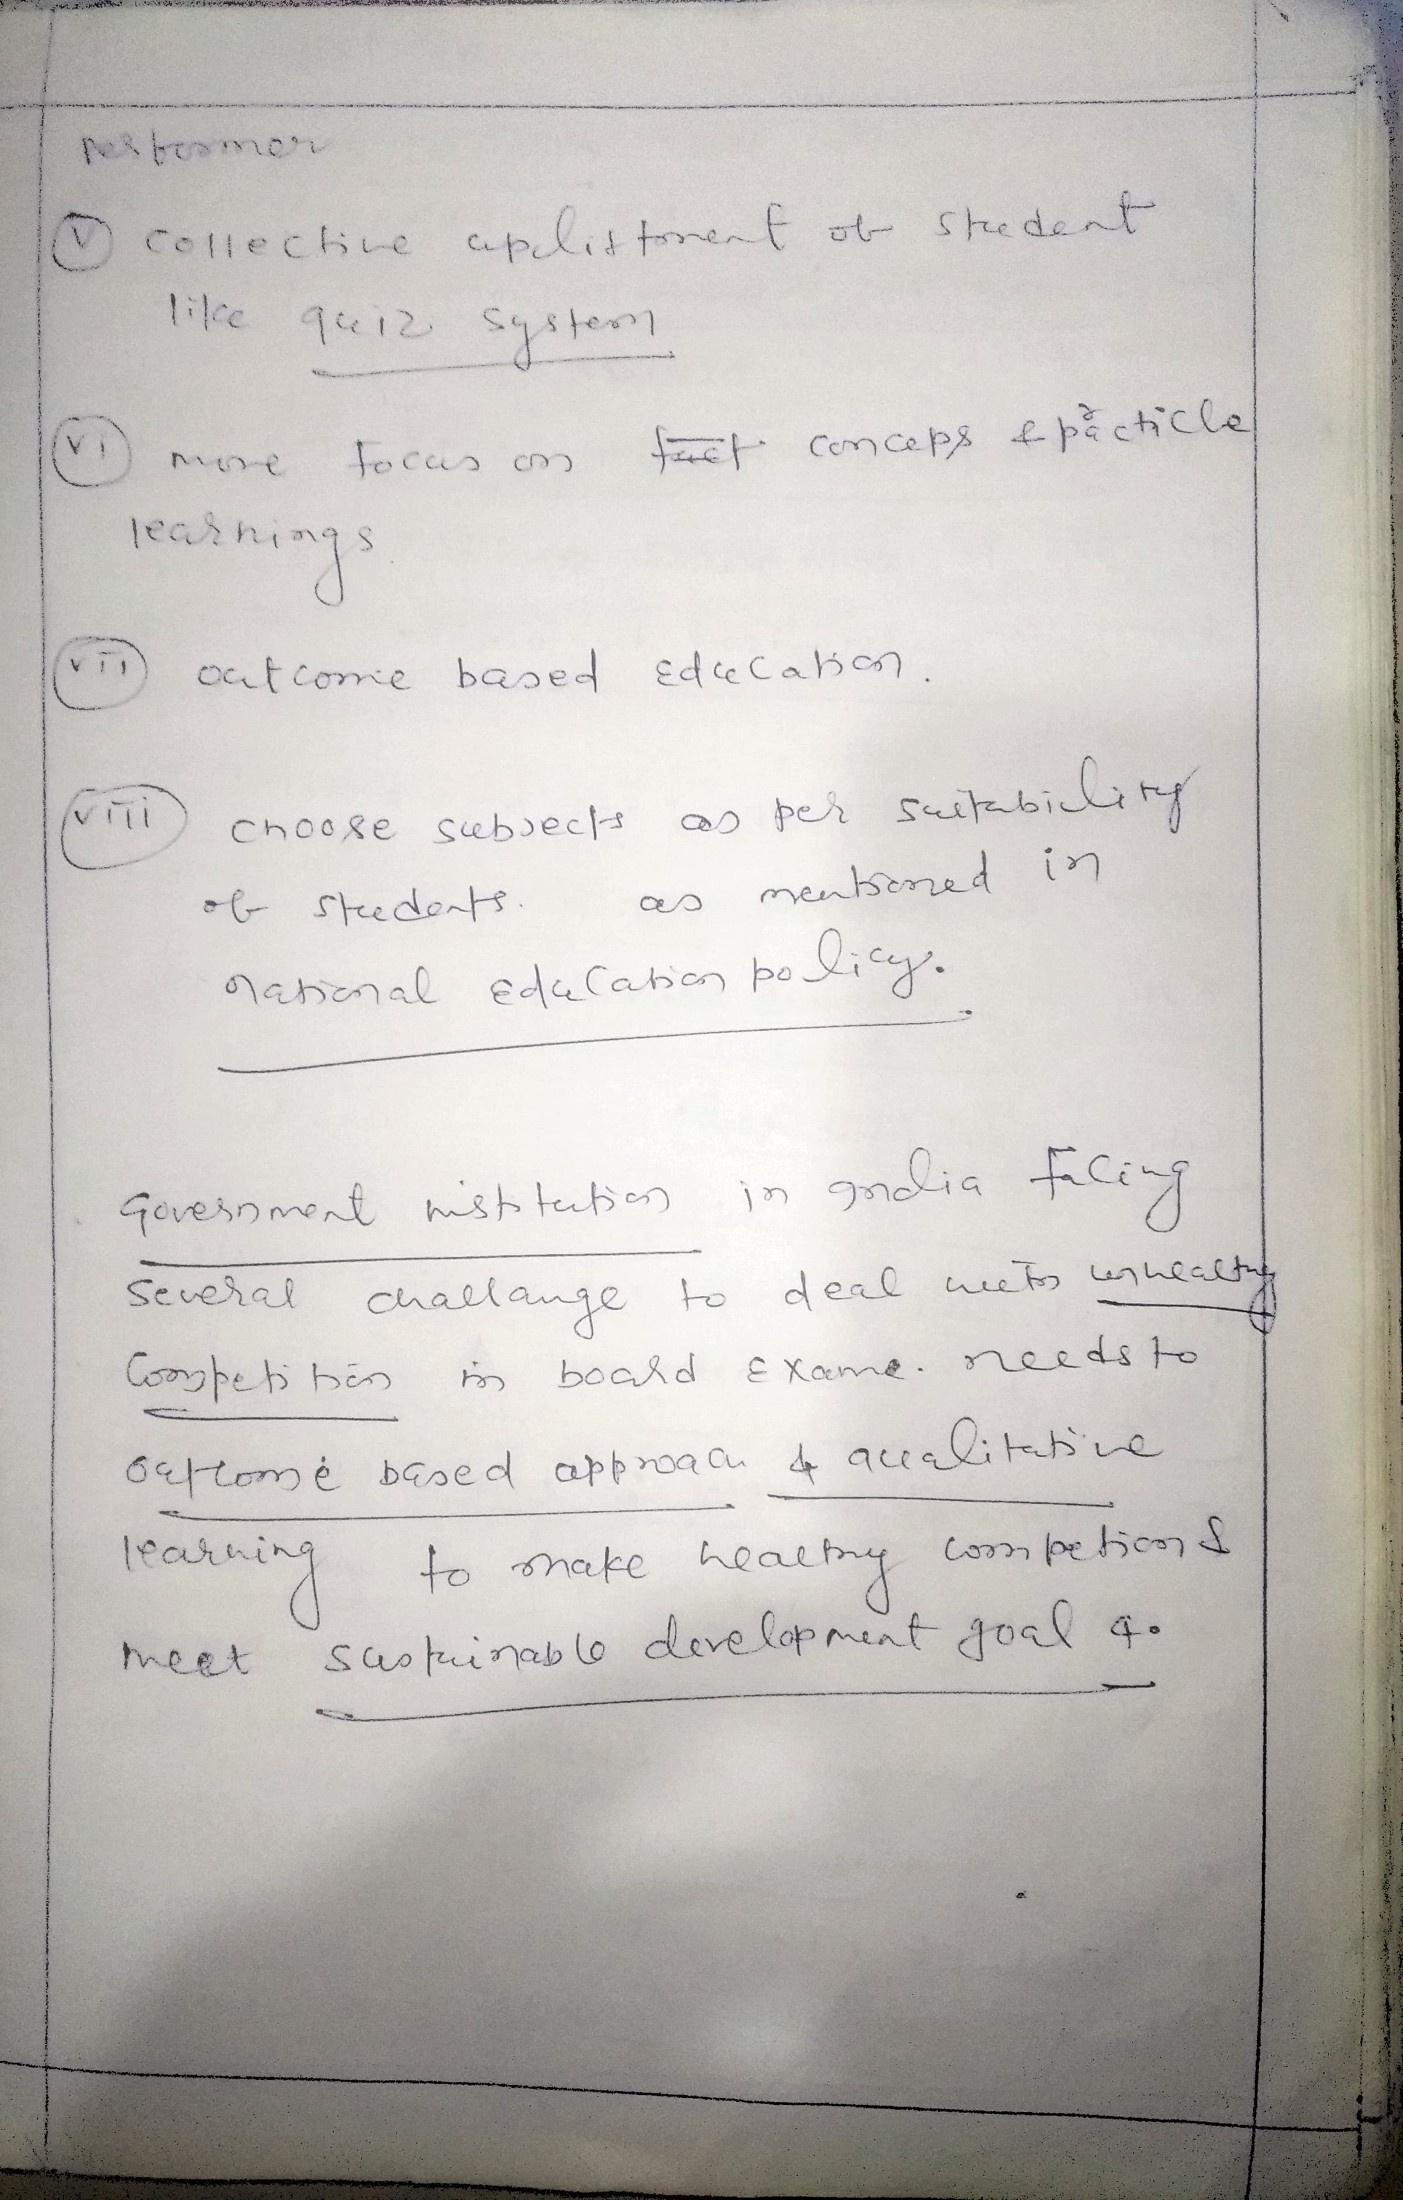 performer
(v) collective upliftment of student
like quiz system
(vi) more focus on fact conceps & practicle
learnings
(vii) outcome based Education.
(viii) choose subjects as per suitability
of students. as mentioned in
national education policy.
Government institution in India facing
several challange to deal with unhealthy
Competition in board Exame. needs to
outcome based approach & qualitative
learning to make healthy competion &
meet sustainable development goal 4.